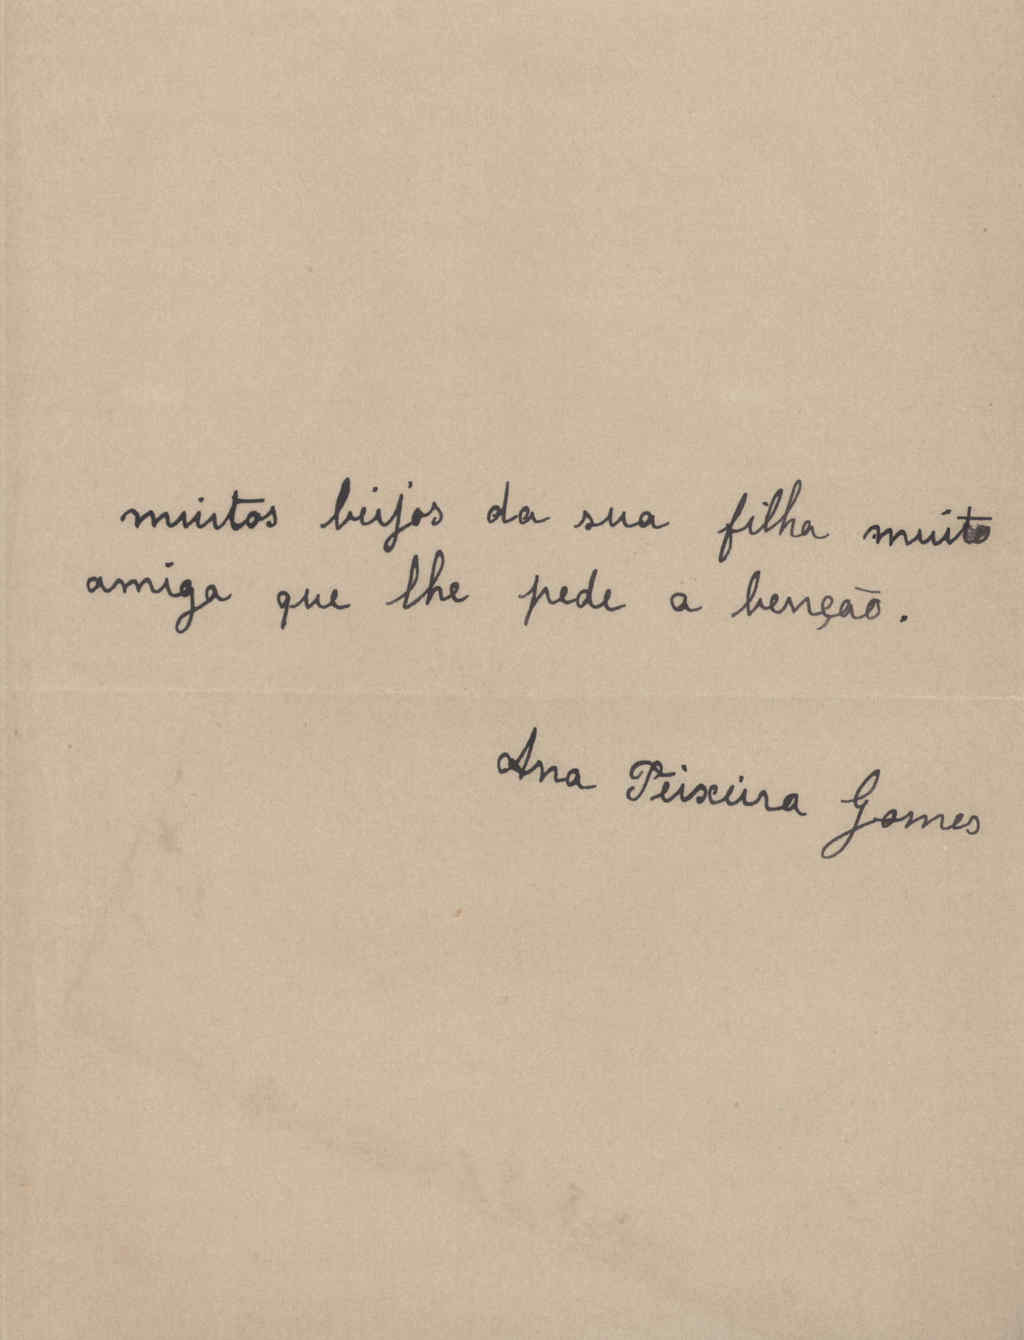 muitos beijos da sua filha muito
amiga que lhe pede a benção.
Ana Teixeira Gomes